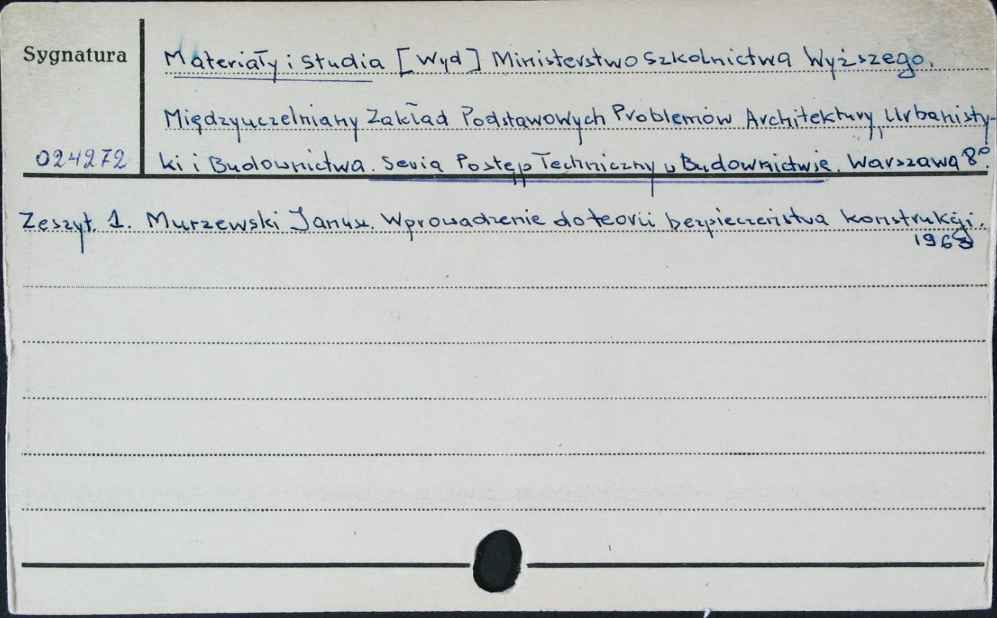 Sygnatura
Materiały i Studia [Wyd] Ministerstwo Szkolnictwa Wyższego.
Międzyuczelniany Zakład Podstawowych Problemów Architektury, Urbanisty-
024272
ki i Budownictwa. Seria Postęp Techniczny w Budownictwie. Warszawa 8°
Zeszyt 1. Murzewski Janusz. Wprowadzenie do teorii bezpieczeństwa konstrukcji.